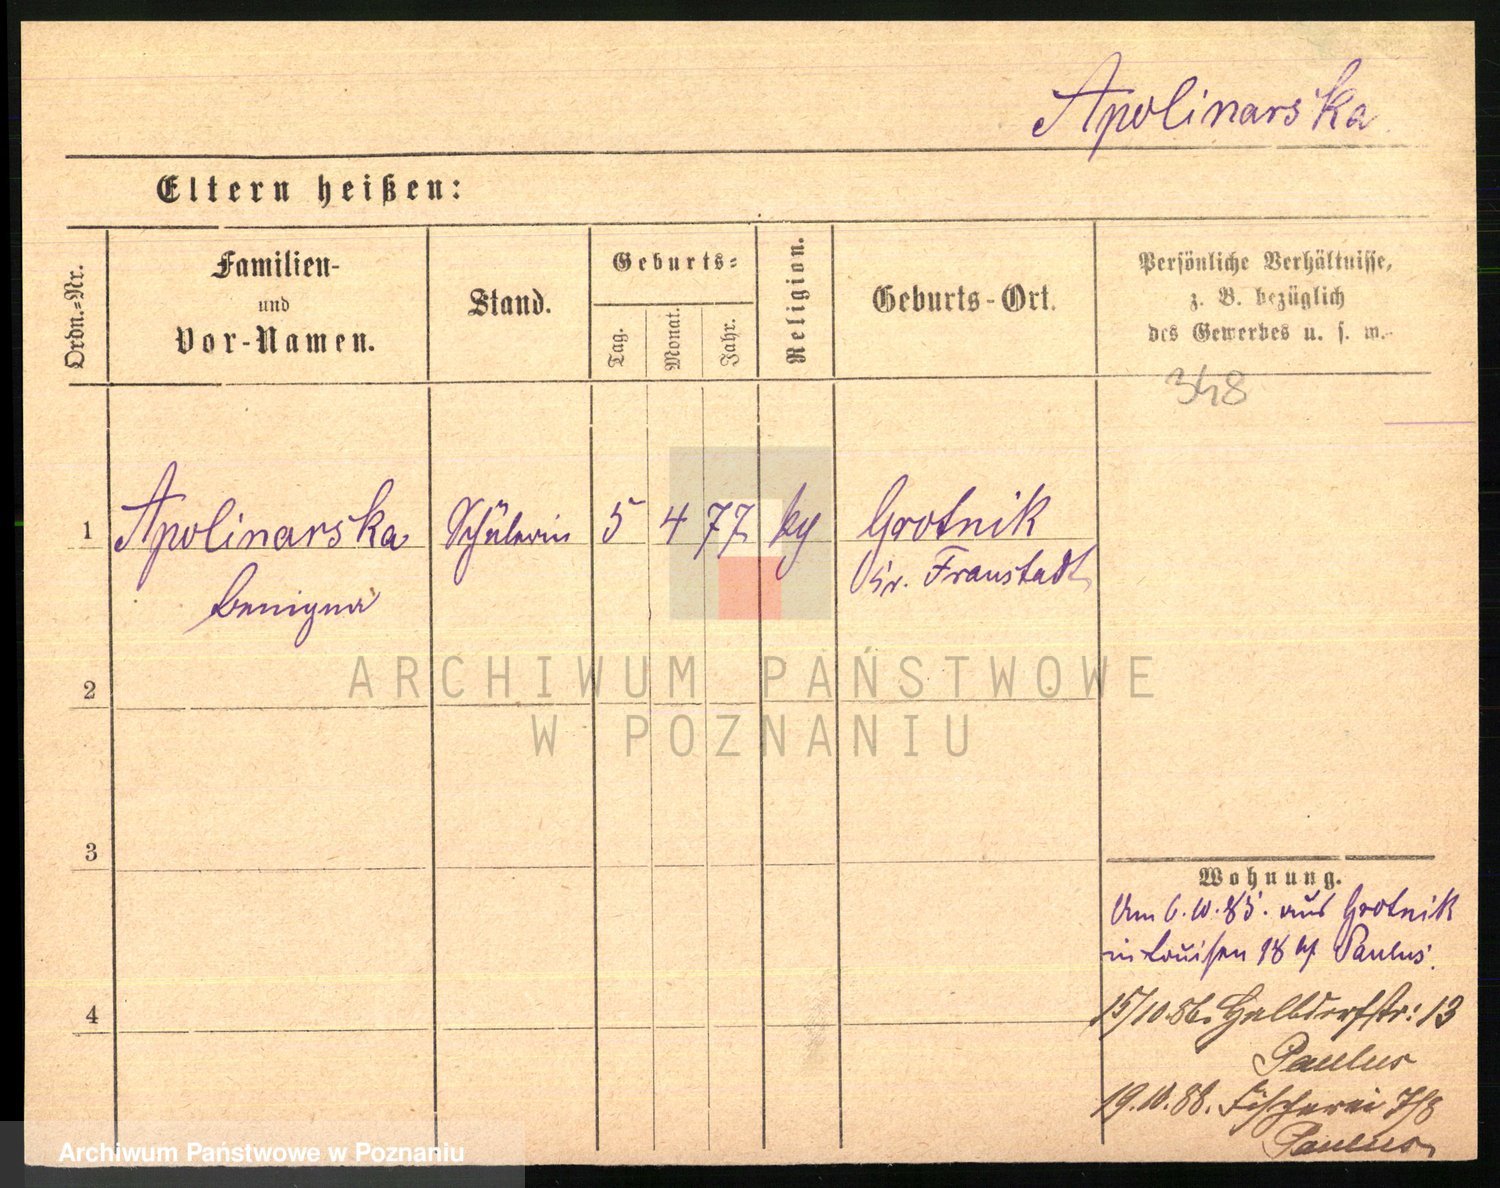 Apolinarska
Eltern heißen:
Ordn.=Nr.
Familien-
und
Vor-Namen.
Stand.
Geburts=
Tag.
Monat.
Jahr.
Religion.
Geburts-Ort.
Persönliche Verhältnisse,
z. B. bezüglich
des Gewerbes u. s. w.
348
1 Apolinarska Schülerin 5 4 77 Grotnik
Benigna Kr. Fraustadt
2
3
4
Wohnung.
Am 6.10.85. aus Grotnik
in Louisen 18 Paulus.
15/10.86. Halbdorfstr: 13
Paulus
19.10.88. Fischerei 7/8
Paulus
ARCHIWUM PAŃSTWOWE
W POZNANIU
Archiwum Państwowe w Poznaniu